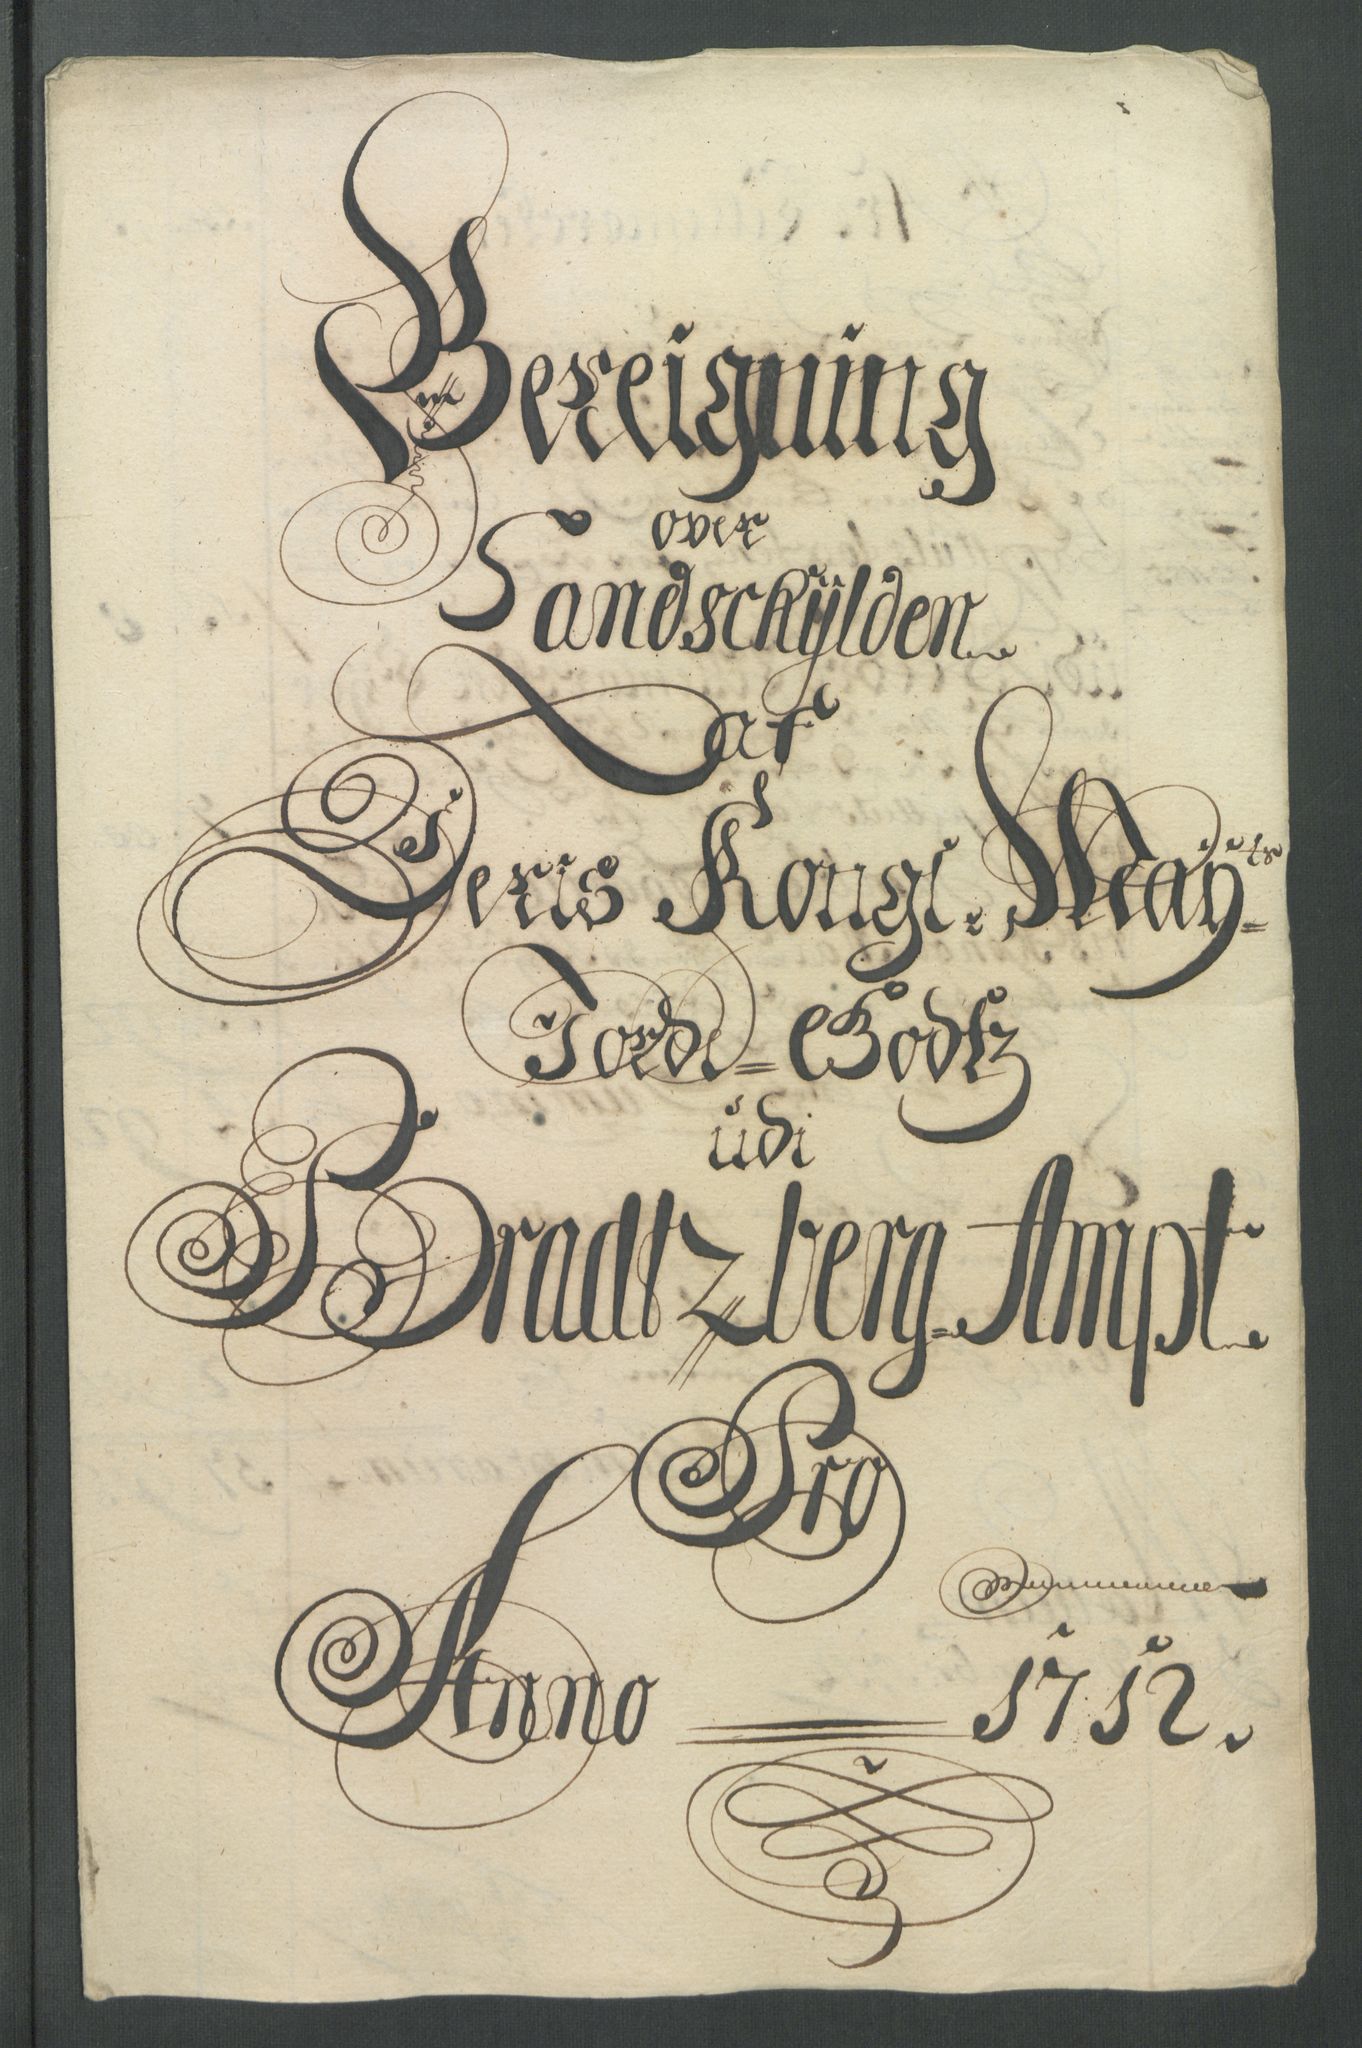 Bereigning
over
Landsckÿlden
af
Deris Kongl. Maÿ:ts
Jorde=Godtz
udi
Bradtzberg=Ampt.
Pro
Anno 1712.